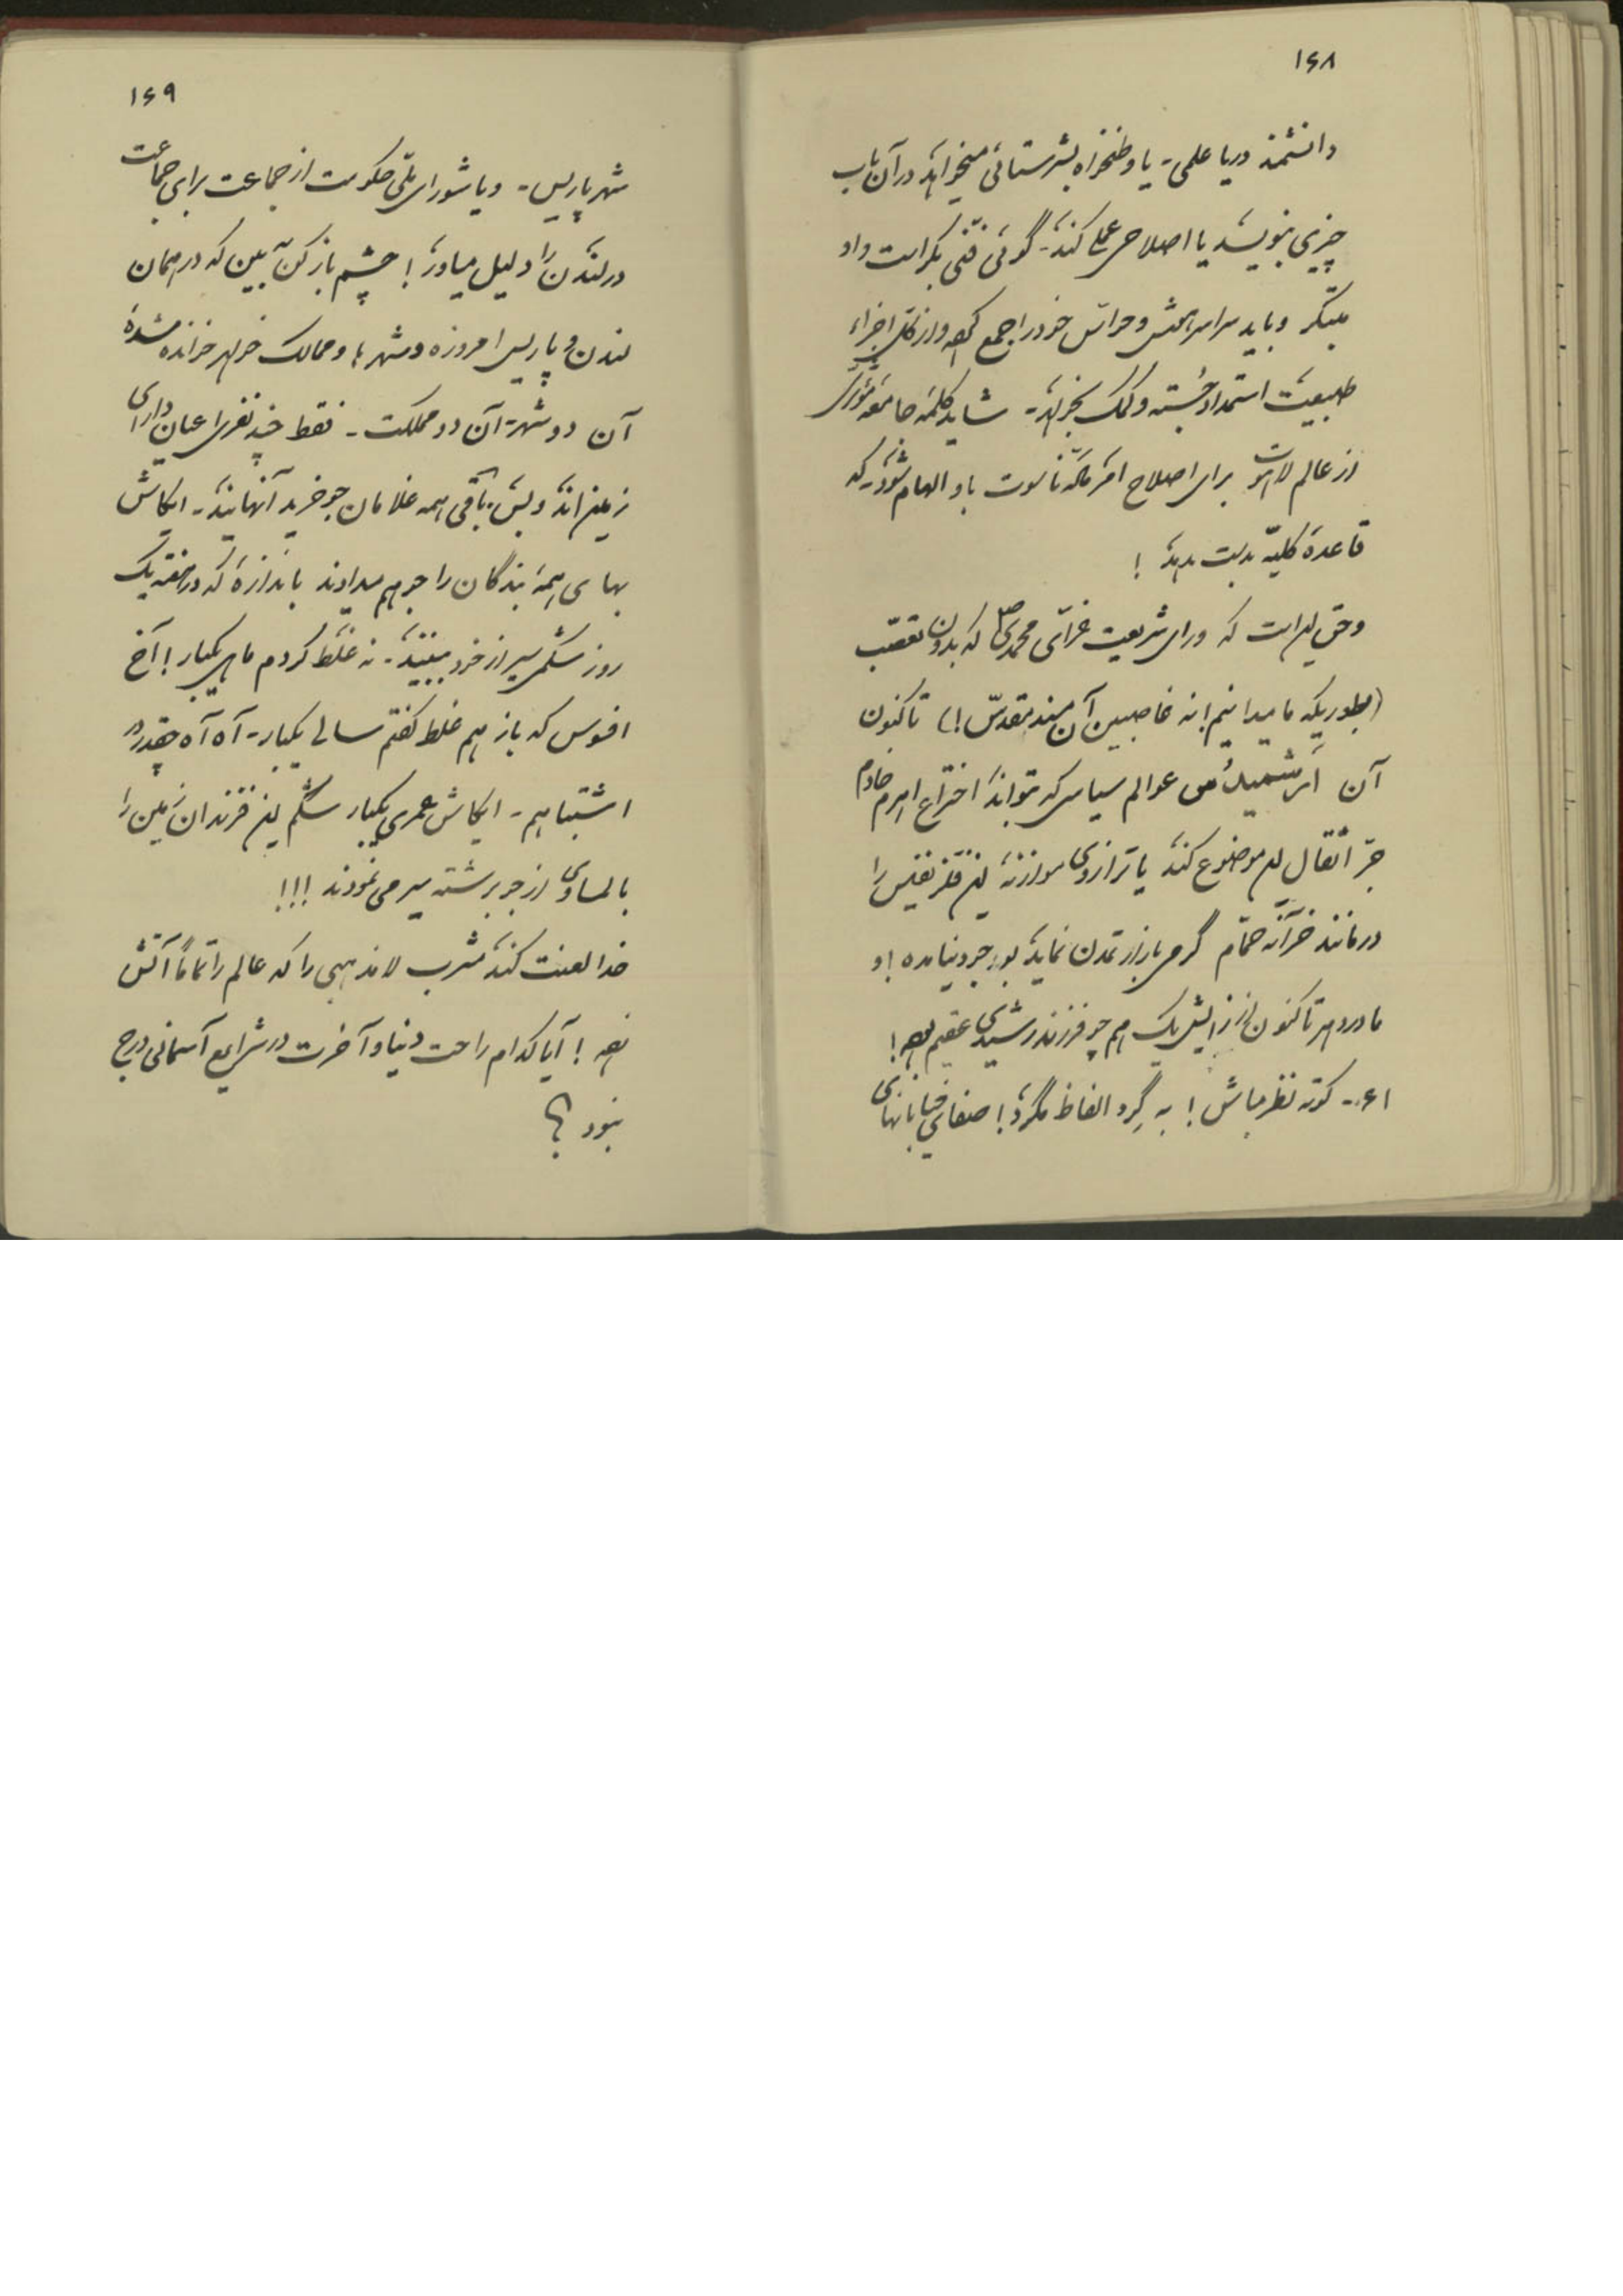 ۱۶۸
دانشمند دریا علمی - یا وطنخواه بشرستائی میخواهد در آن باب
چیزی بنویسد یا اصلاحی عملی کند - گوئی فنّی بکر است و او
مبتکر و باید سراسر هش و حواس خود را جمع کرده و از کل اجزاء
طبیعت استمداد جسته و کمک بخواهد - شاید کلمهٔ جامعهٔ مؤثری
از عالم لاهوت برای اصلاح امر مآله ناسوت باو الهام شود - که
قاعدهٔ کلیّه بدست بدهد !
و حق این است که ورای شریعت غرّای محمدی ص که بدون تعصّب
(بطوریکه ما میدانیم نه غاصبین آن مسند مقدّس !) تاکنون
آن ارشمیدُس عوالم سیاسی که بتواند اختراع اهرم
جرّ اثقال این موضوع کند یا ترازوی موازنهٔ این فلز نفیس را
در مانند خزانه حمّام گرمی بازار تمدن نماید بوجود نیامده ! و
مادر دهر تاکنون از زایش یک هم چو فرزند رشیدی عقیم بوده !
۱۶- کوته نظر مباش ! به گِرد الفاظ مگرد ! صفای خیابانهای
۱۶۹
شهر پاریس - و یا شورای ملّی حکومت از جماعت برای جماعت
در لندن را دلیل میاور ! چشم باز کن ببین که در همان
لندن و پاریس امروزه و شهرها و ممالک خواهر خوانده شدهٔ
آن دو شهر - آن دو مملکت - فقط چند نفری اعیان دارای
زمین اند و بس - باقی همه غلامان جو خرید آنهایند - ایکاش
بهای همهٔ بندگان را جو هم میدادند باندازهٔ که در هفته یک
روز شکمی سیر از خود ببینند - نه غلط کردم ماهی یکبار ! آخ
افسوس که باز هم غلط گفتم سالی یکبار - آه آه چقدر در
اشتباهم - ایکاش عمری یکبار شکم این فرزندان زمین را
بالمساوی از جو برشته سیر می نمودند !!!
خدا لعنت کند مشرب لامذهبی را که عالم را تماماً آتش
زده ! آیا کدام راحت دنیا و آخرت در شرایع آسمانی درج
نبود ؟